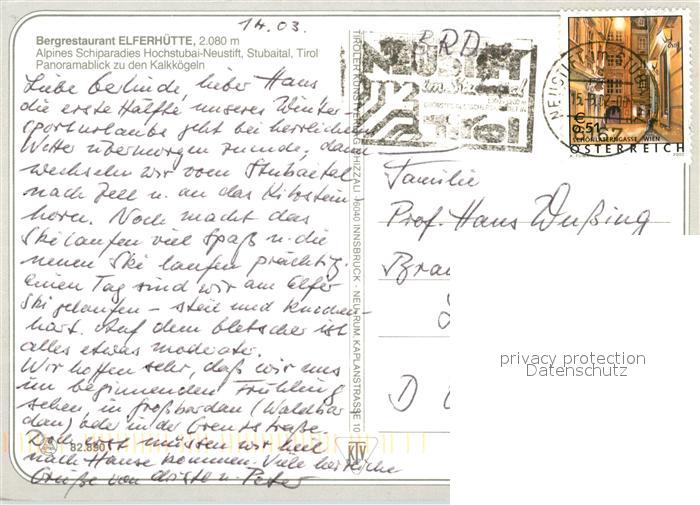 14.03.
Bergrestaurant ELFERHÜTTE, 2.080 m
Alpines Schiparadies Hochstubai-Neustift, Stubaital, Tirol
Panoramablick zu den Kalkkögeln
Liebe Gerlinde, lieber Hans
die erste Hälfte unseres Winter-
sporturlaubs geht bei herrlichem
Wetter übermorgen zuende, dann
wechseln wir vom Stubaital
nach Zell u. an das Kitzstein-
horn. Noch macht das
Skilaufen viel Spaß u. die
neuen Ski laufen prächtig.
Einen Tag sind wir am Elfer
Ski gelaufen – steil und knochen-
hart. Auf dem Gletscher ist
alles etwas moderater.
Wir hoffen sehr, daß wir uns
im beginnenden Frühling
sehen in Großbardau (Waldbar
dau) oder in der Grenzstraße
Doch erst müssen wir heil
nach Hause kommen. Viele herzliche
Grüße von Christa u. Peter
82.890
KTV
TIROLER KUNSTVERLAG CHIZZALI · 6040 INNSBRUCK - NEU-RUM, KAPLANSTRASSE 10
BRD
Tirol
€ 0,51
SCHÖNLATERNGASSE, WIEN
ÖSTERREICH
Familie
Prof. Hans Wußing
D
privacy protection
Datenschutz